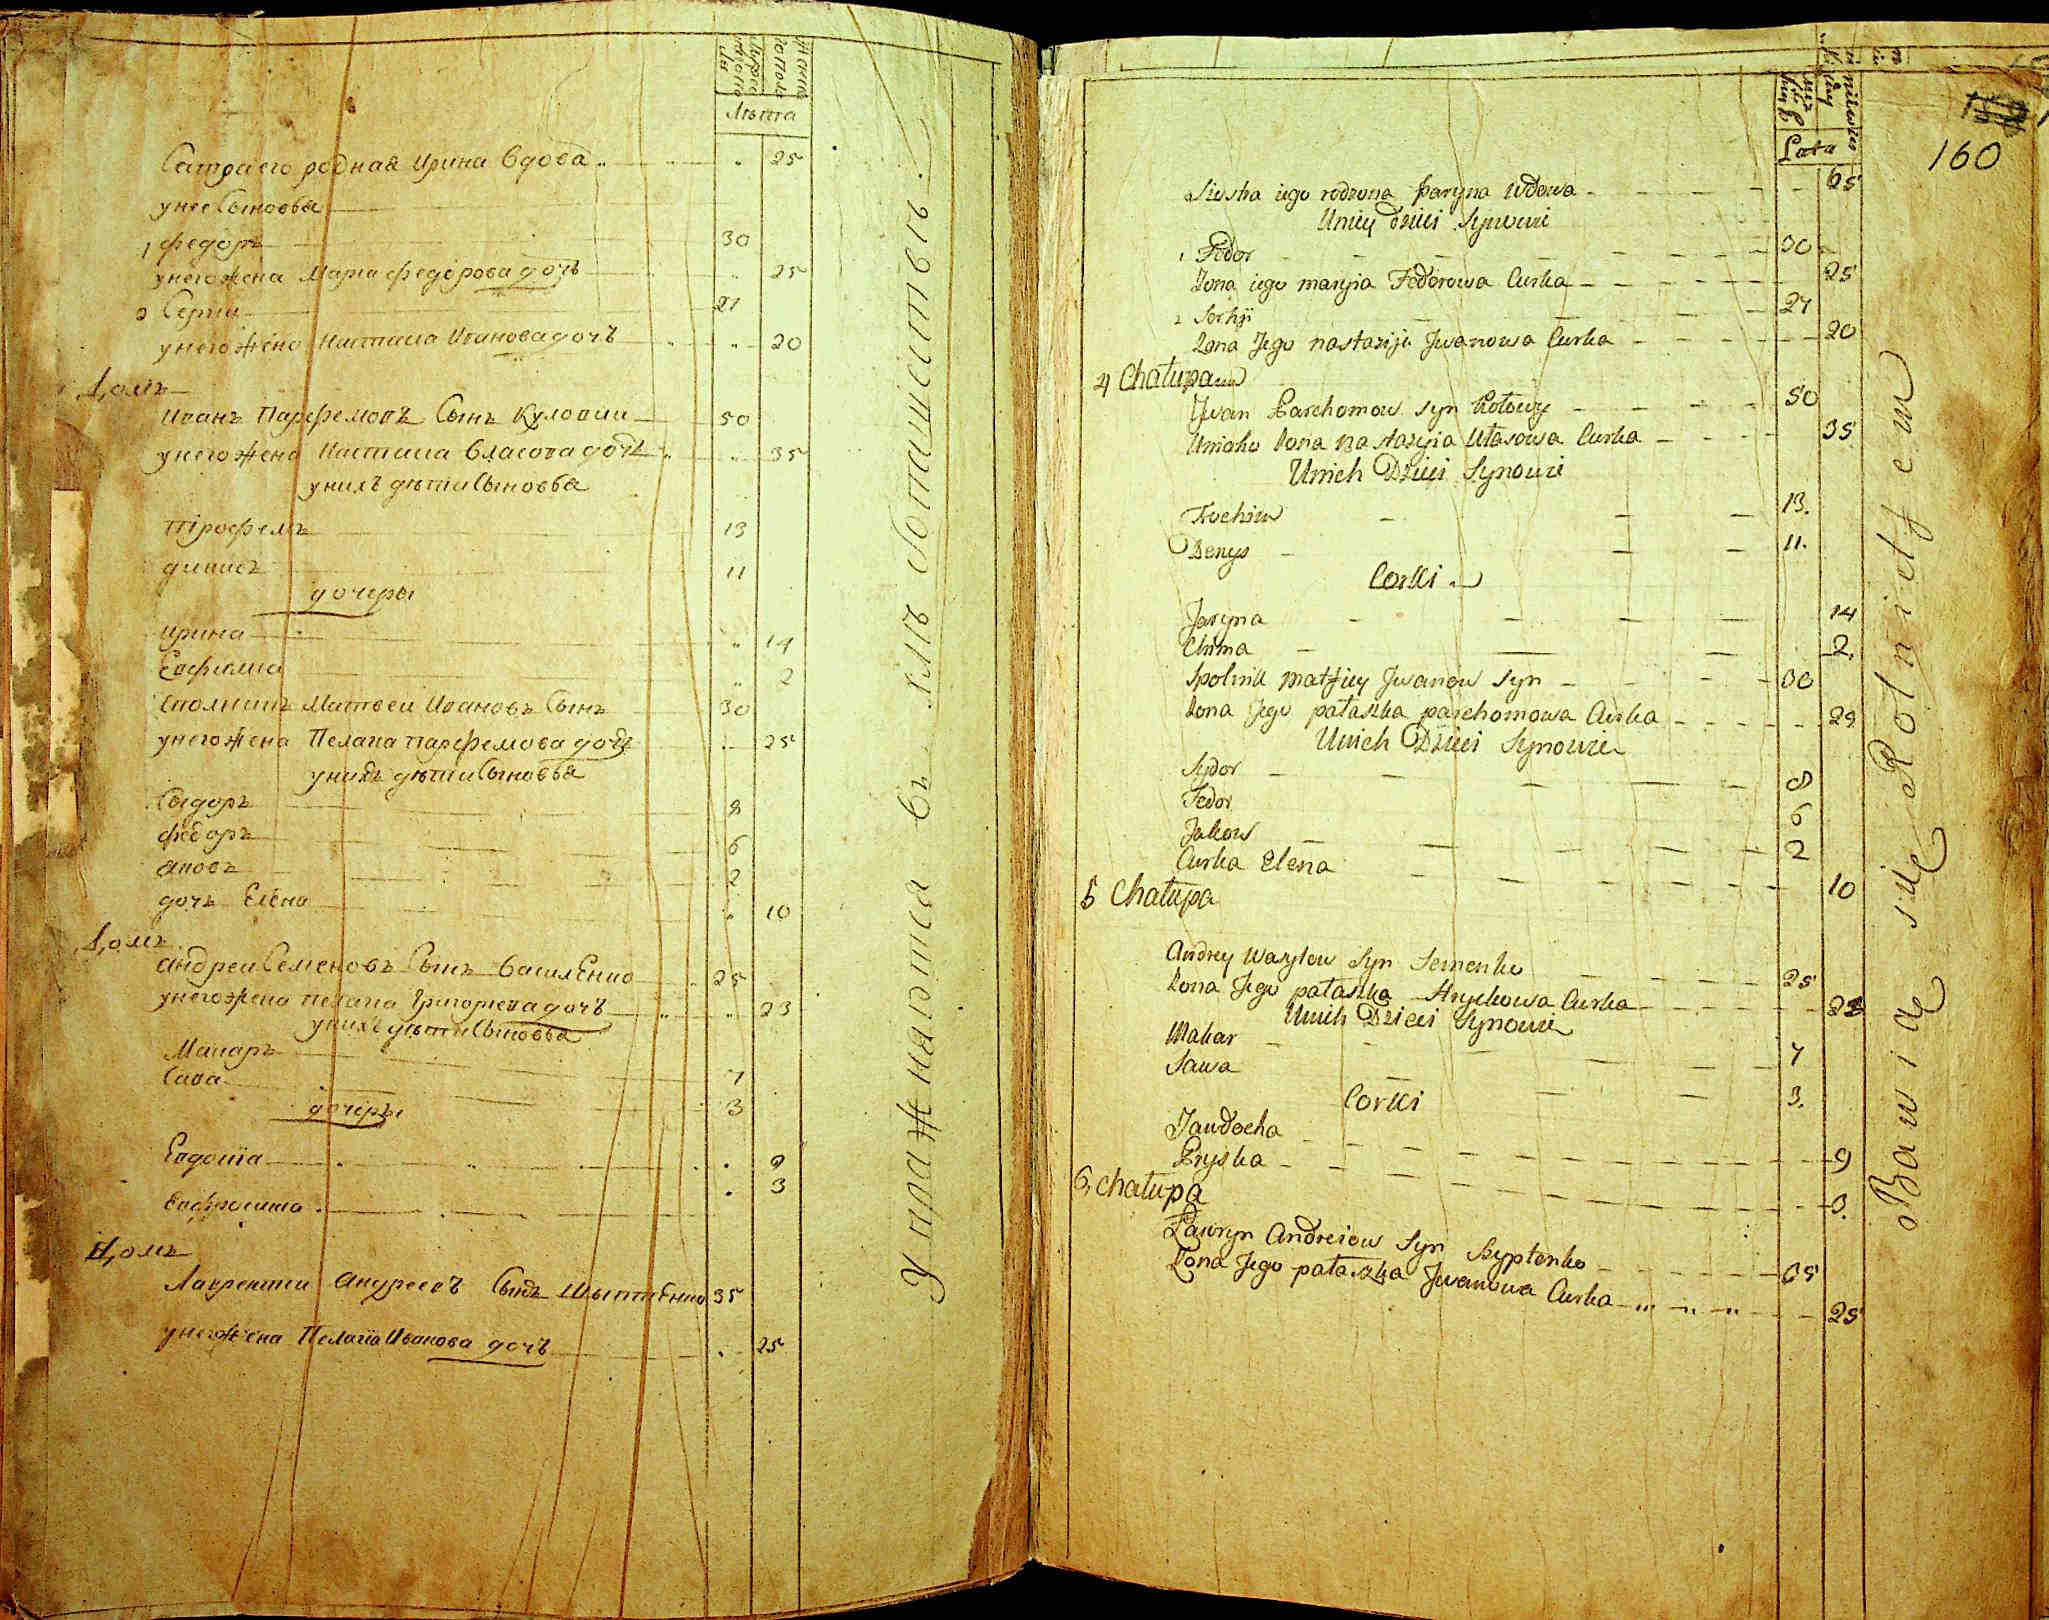 Лѣта
Сатра его родная Ирина вдова 25
у нее Сыновья
1 Федоръ 30
у него жена Мариа Федорова дочь 25
2 Сергіи 21
у него жена Настасиа Иванова дочъ 20
Домъ
Иванъ Парфемовъ Сынъ 50
у него жена Настасиа Власова дочь 35
у нихъ дѣти Сыновья
13
11
дочеры
Ирина 14
Евфимиа 2
Матвеи Ивановъ Сынъ 30
у него жена Пелагиа Парфемова дочь 25
у нихъ дѣти Сыновья
Сидоръ 8
Федоръ 6
Яковъ 2
дочь Елена 10
Домъ
Андреи Семеновъ Сынъ Василенко 25
у него жена Пелагиа Григориева дочъ 23
у нихъ дѣти Сыновья
Макаръ 7
Сава 3
дочеры
Евдокіа 9
Евфросиниа 3
Домъ
Лаврентии Андреевъ Сынъ 35
у него жена Пелагіа Иванова дочъ 25
Упражняются въ хлѣбопашествѣ.
160
Lata
Siostra iego rodzona Jaryna Wdowa 65
Uniey Dzieci Synowie
1 Fedor 30
Zona iego maryia Fedorowa Curka 25
2 Serhji 27
Zona Jego nastazija Jwanowa Curka 20
4 Chałupa
Jwan Parchomow syn 50
Uniaho Zona nastazyia Ułasowa Curka 35
Unich Dzieci Synowie
13.
Denys 11.
Corki
Jaryna 14
Chima 2.
Spolnik Matfiey Jwanow Syn 30
Zona Jego pałaszka parchomowa Curka 29
Unich Dzieci Synowie
Sydor 8
Fedor 6
Jakow 2
Curka Elena 10
5 Chałupa
Andrey Wasylow Syn Semenko 25
Zona Jego pałaszka Hryckowa Curka
Unich Dzieci Synowie
Makar 7
Sawa 3.
Corki
Jawdocha 9
Pryska 3.
6, Chałupa
Ławryn Andreiow Syn Szyptenko
Zona Jego pałaszka Jwanowa Curka 25
Bawią się Rolnictwem